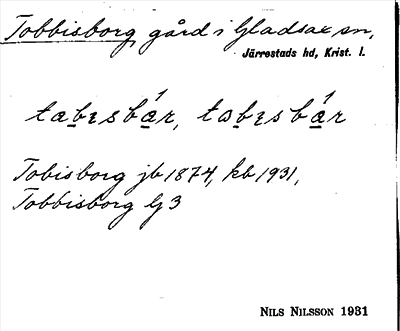 Tobbisborg gård i Gladsax sn,
Järrestads hd, Krist. l.
Tobisborg jb 1874, kb 1931,
Tobbisborg Gj 3
NILS NILSSON 1931